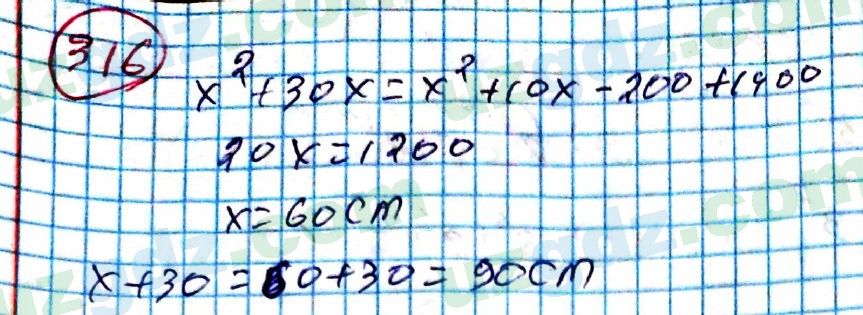 316
x² + 30x = x² + 10x - 200 + 1400
20x = 1200
x = 60 cm
x + 30 = 60 + 30 = 90 cm